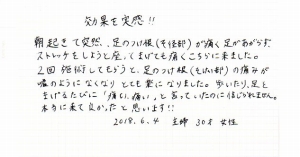 効果を実感!!
朝起きて突然、足のつけ根(そ径部)が痛く足があがらず、
ストレッチをしようと座ってまげても痛くこちらに来ました。
2回施術してもらうと、足のつけ根(そけい部)の痛みが
嘘のようになくなりとても楽になりました。歩いたり、足を
まげるたびに「痛い、痛い」と言っていたのに信じられません。
本当に来て良かったと思います!!
2018.6.4 主婦 30才 女性